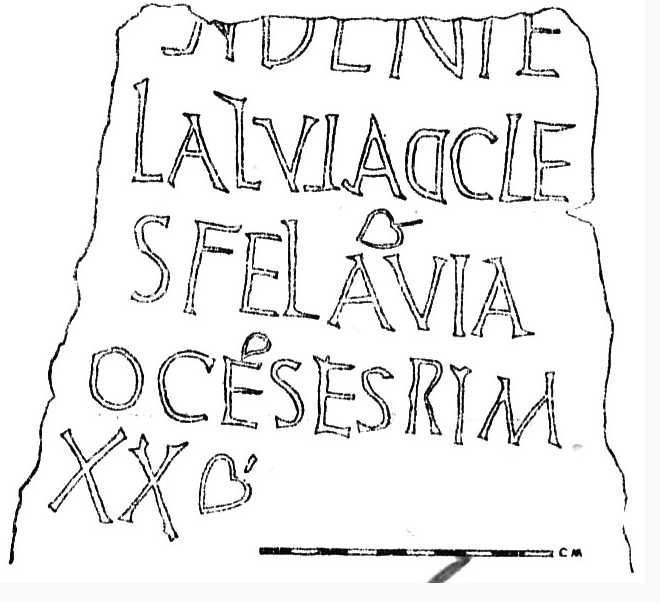 SYDENTE
LALVIADCLE
SFEL❦AVIA
OCESESRIM
XX❦
CM